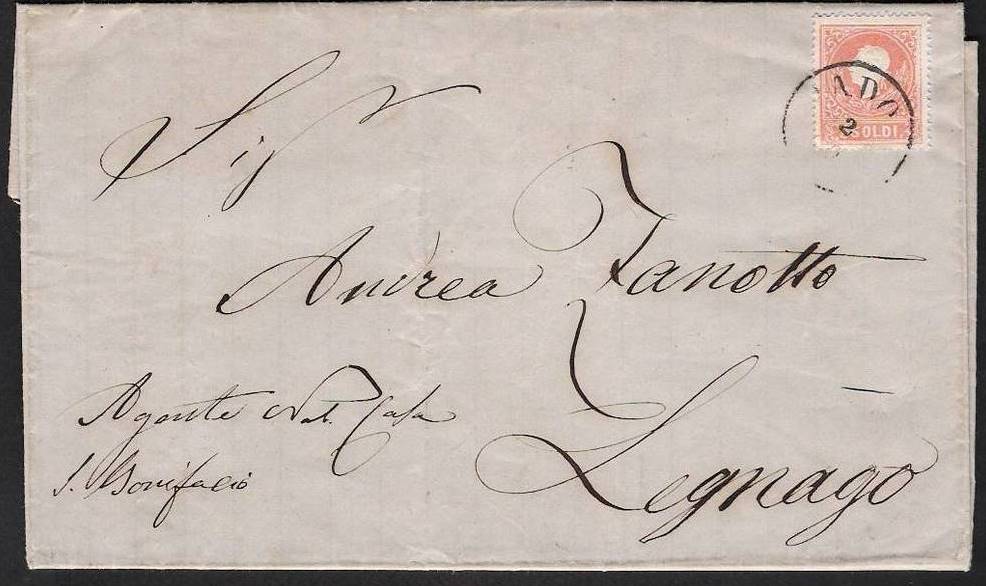 ADO
2
SOLDI.
Sigr
Andrea Zanotto
Agente Nob. Casa
S. Bonifacio
Legnago